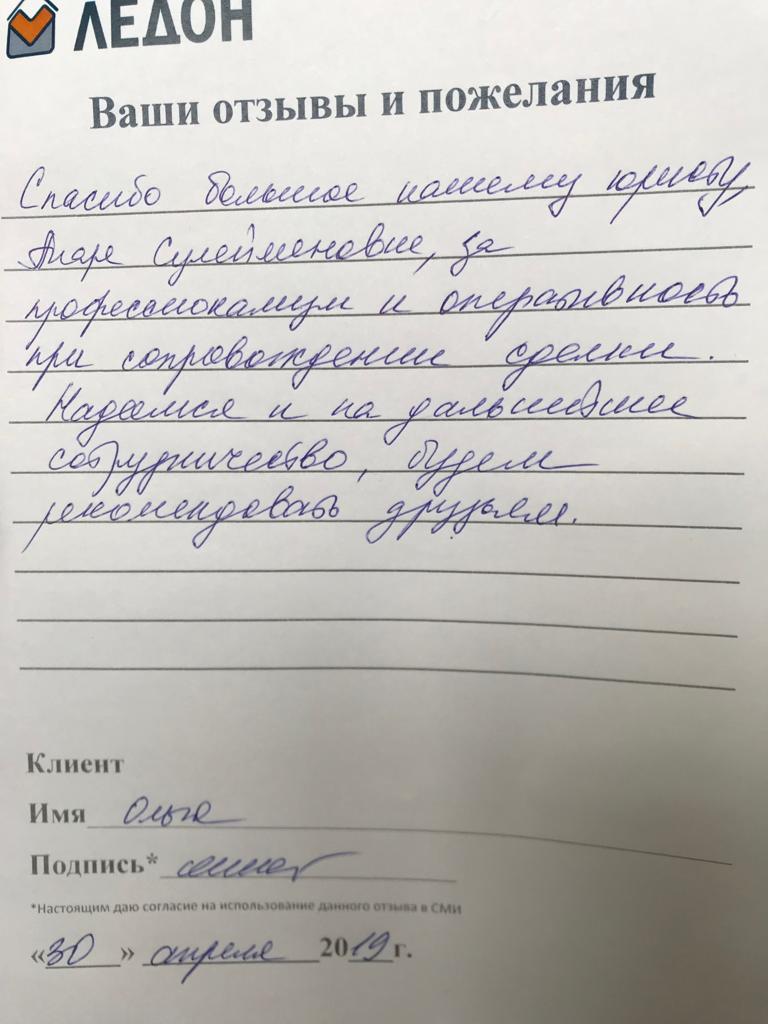 ЛЕДОН
Ваши отзывы и пожелания
Спасибо большое нашему юристу,
Сулейменовне, за
профессионализм и оперативность
при сопровождении сделки.
Надеемся и на дальнейшее
сотрудничество, будем
рекомендовать друзьям.
Клиент
Имя Ольга
Подпись*
*Настоящим даю согласие на использование данного отзыва в СМИ
«30» апреля 2019г.